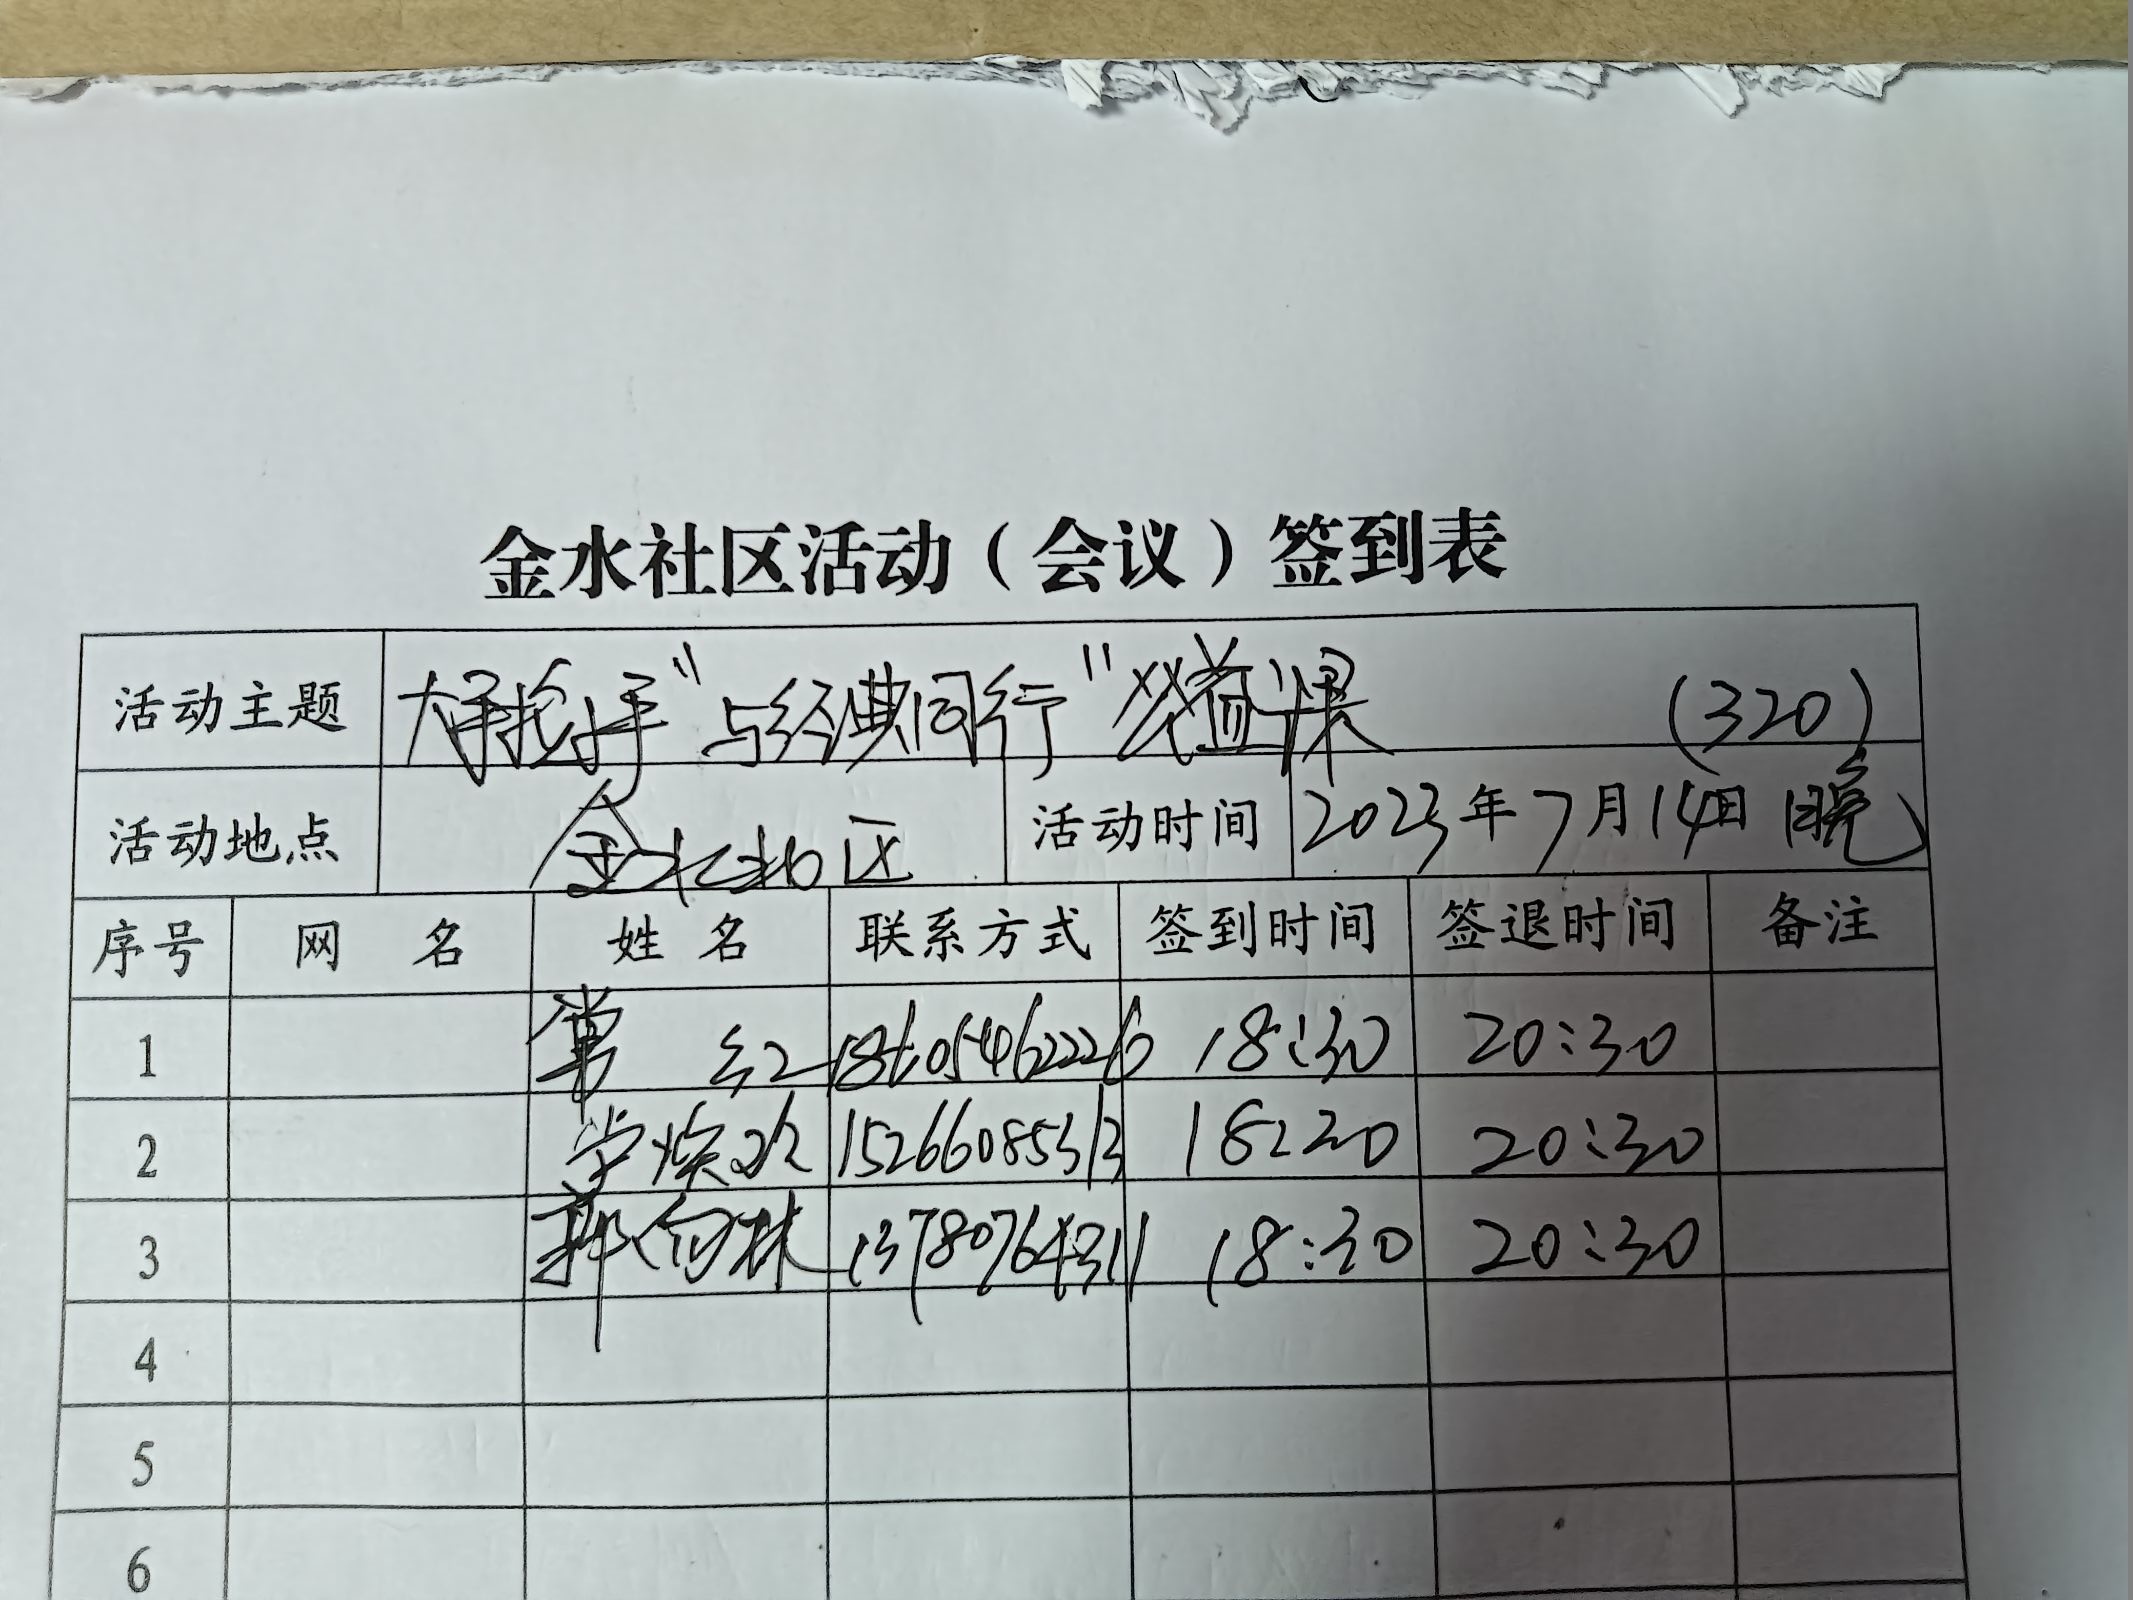 金水社区活动（会议）签到表
活动主题 大手拉小手"与经典同行"公益课 (320)
活动地点 金水社区 活动时间 2023年7月14日 晚
序号 网 名 姓 名 联系方式 签到时间 签退时间 备注
1 常 红 18605462226 18:30 20:30
2 15266085313 18:30 20:30
3 郭 林 13780764311 18:30 20:30
4
5
6